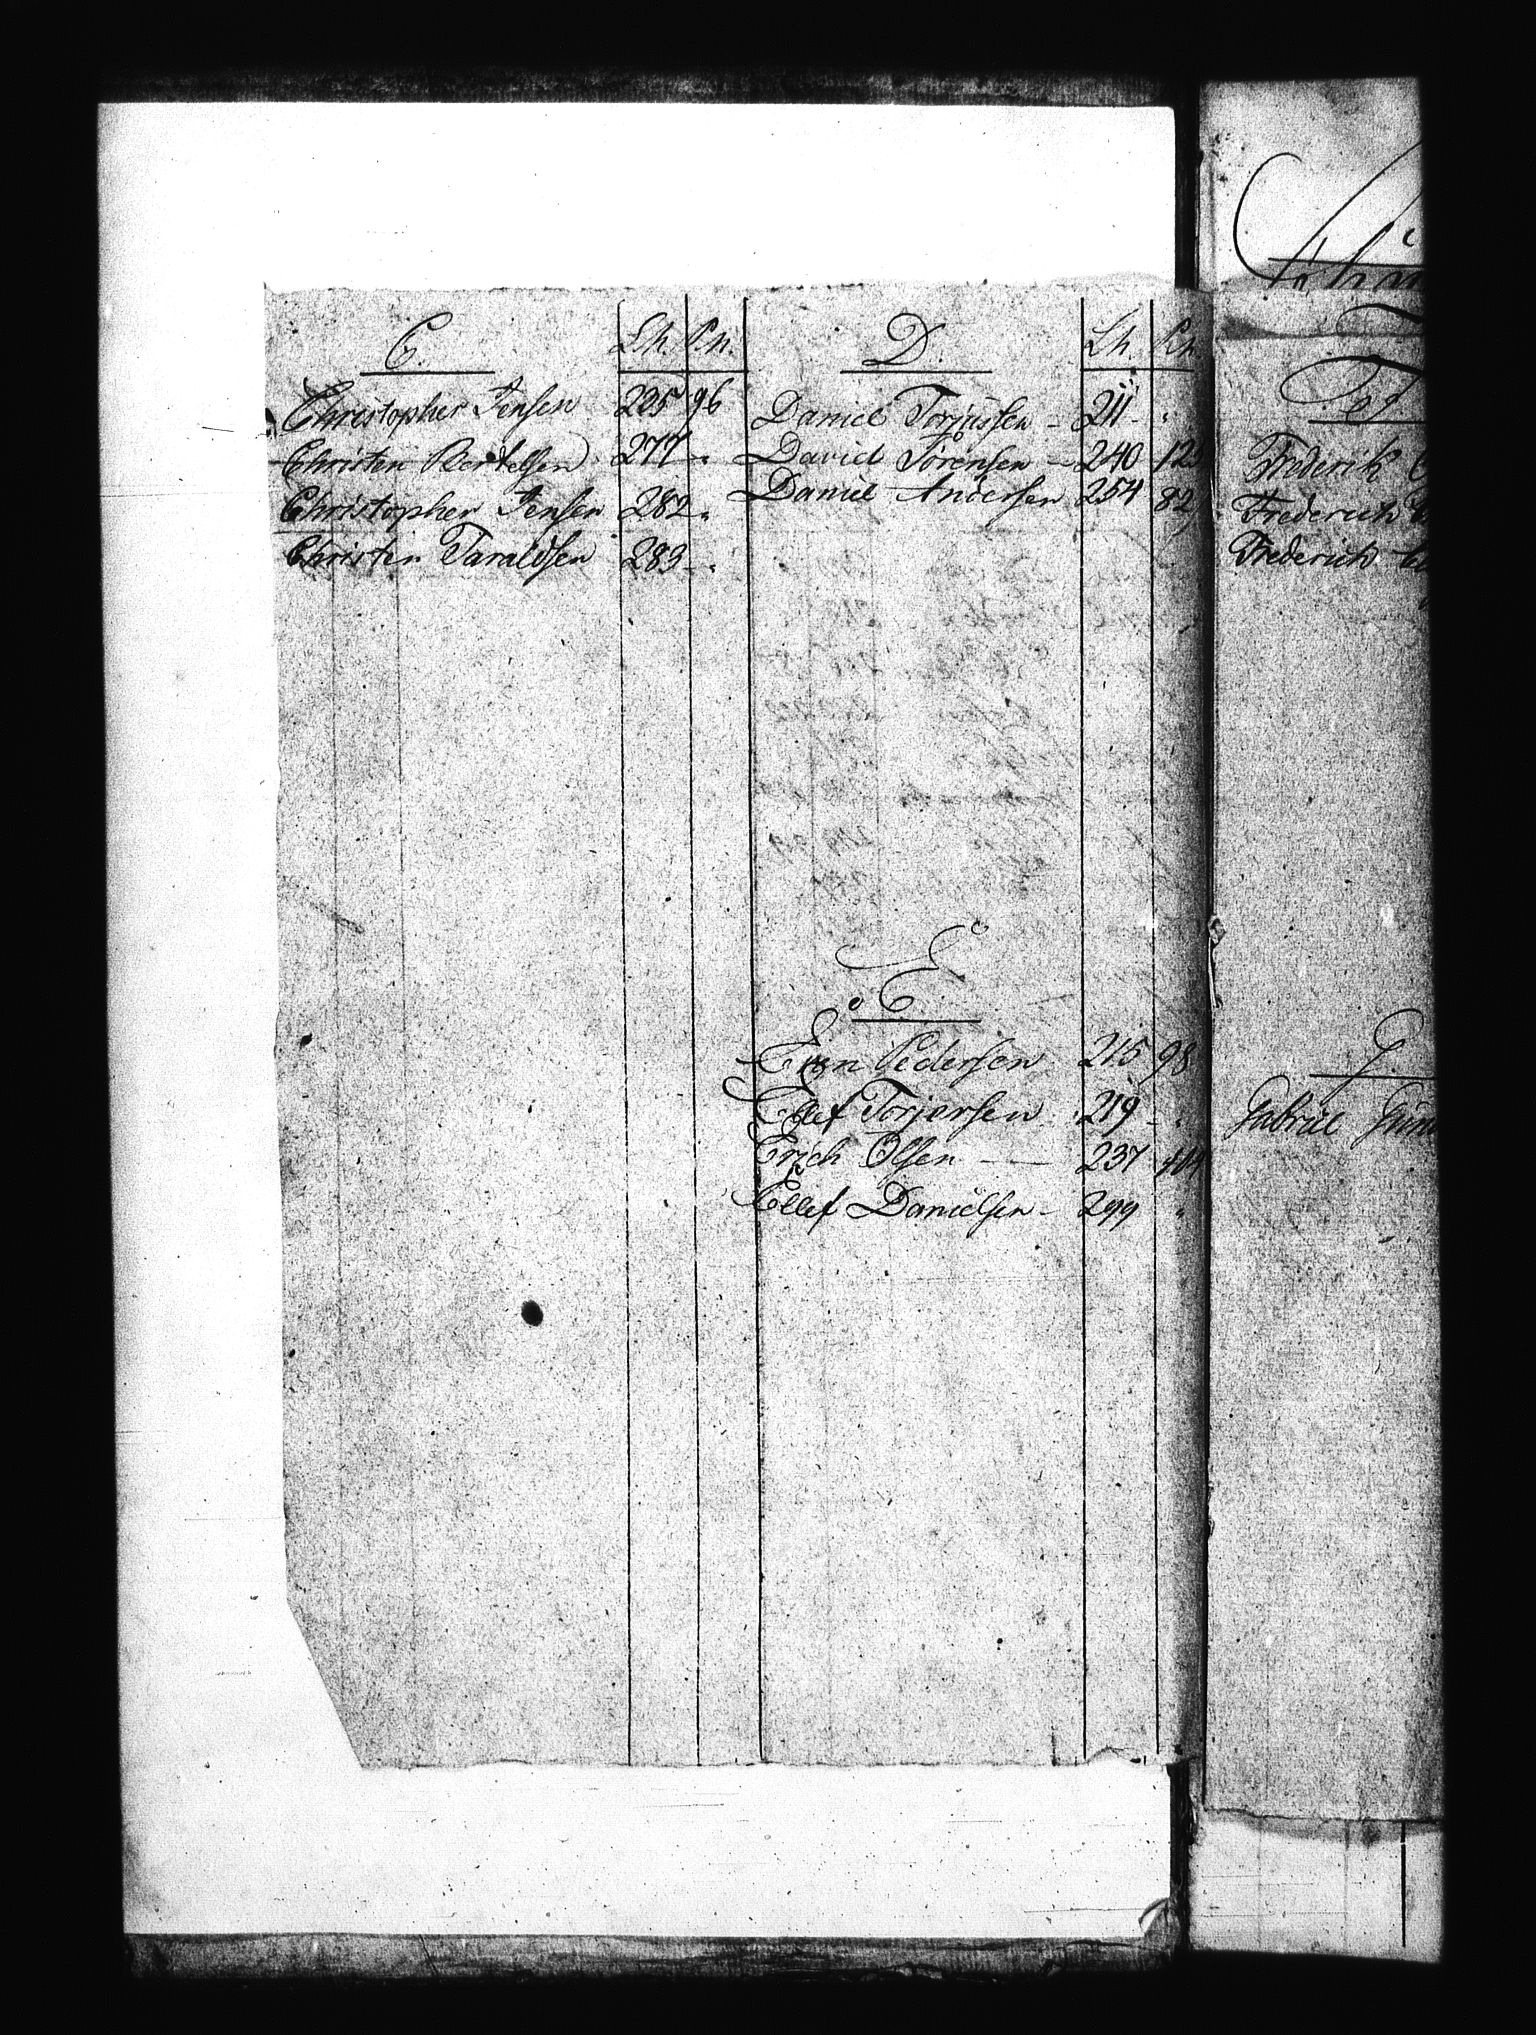 C. L.n. R.n.
Christopher Jensen 225 96
Christen Bertelsen 277 "
Christopher Jensen 282 "
Christen Taraldsen 283 - "
D. L.n. R.n.
Daniel Torjussen - 211 - "
David Sørensen - 240 12
Daniel Andersen 254 82
E
E.
Even Pedersen 215 98
Ellef Torjersen 219 - "
Erich Olsen — 237 404
Ellef Danielsen - 299 "
F
Frederik
Frederich
Frederich
G.
Gabriel